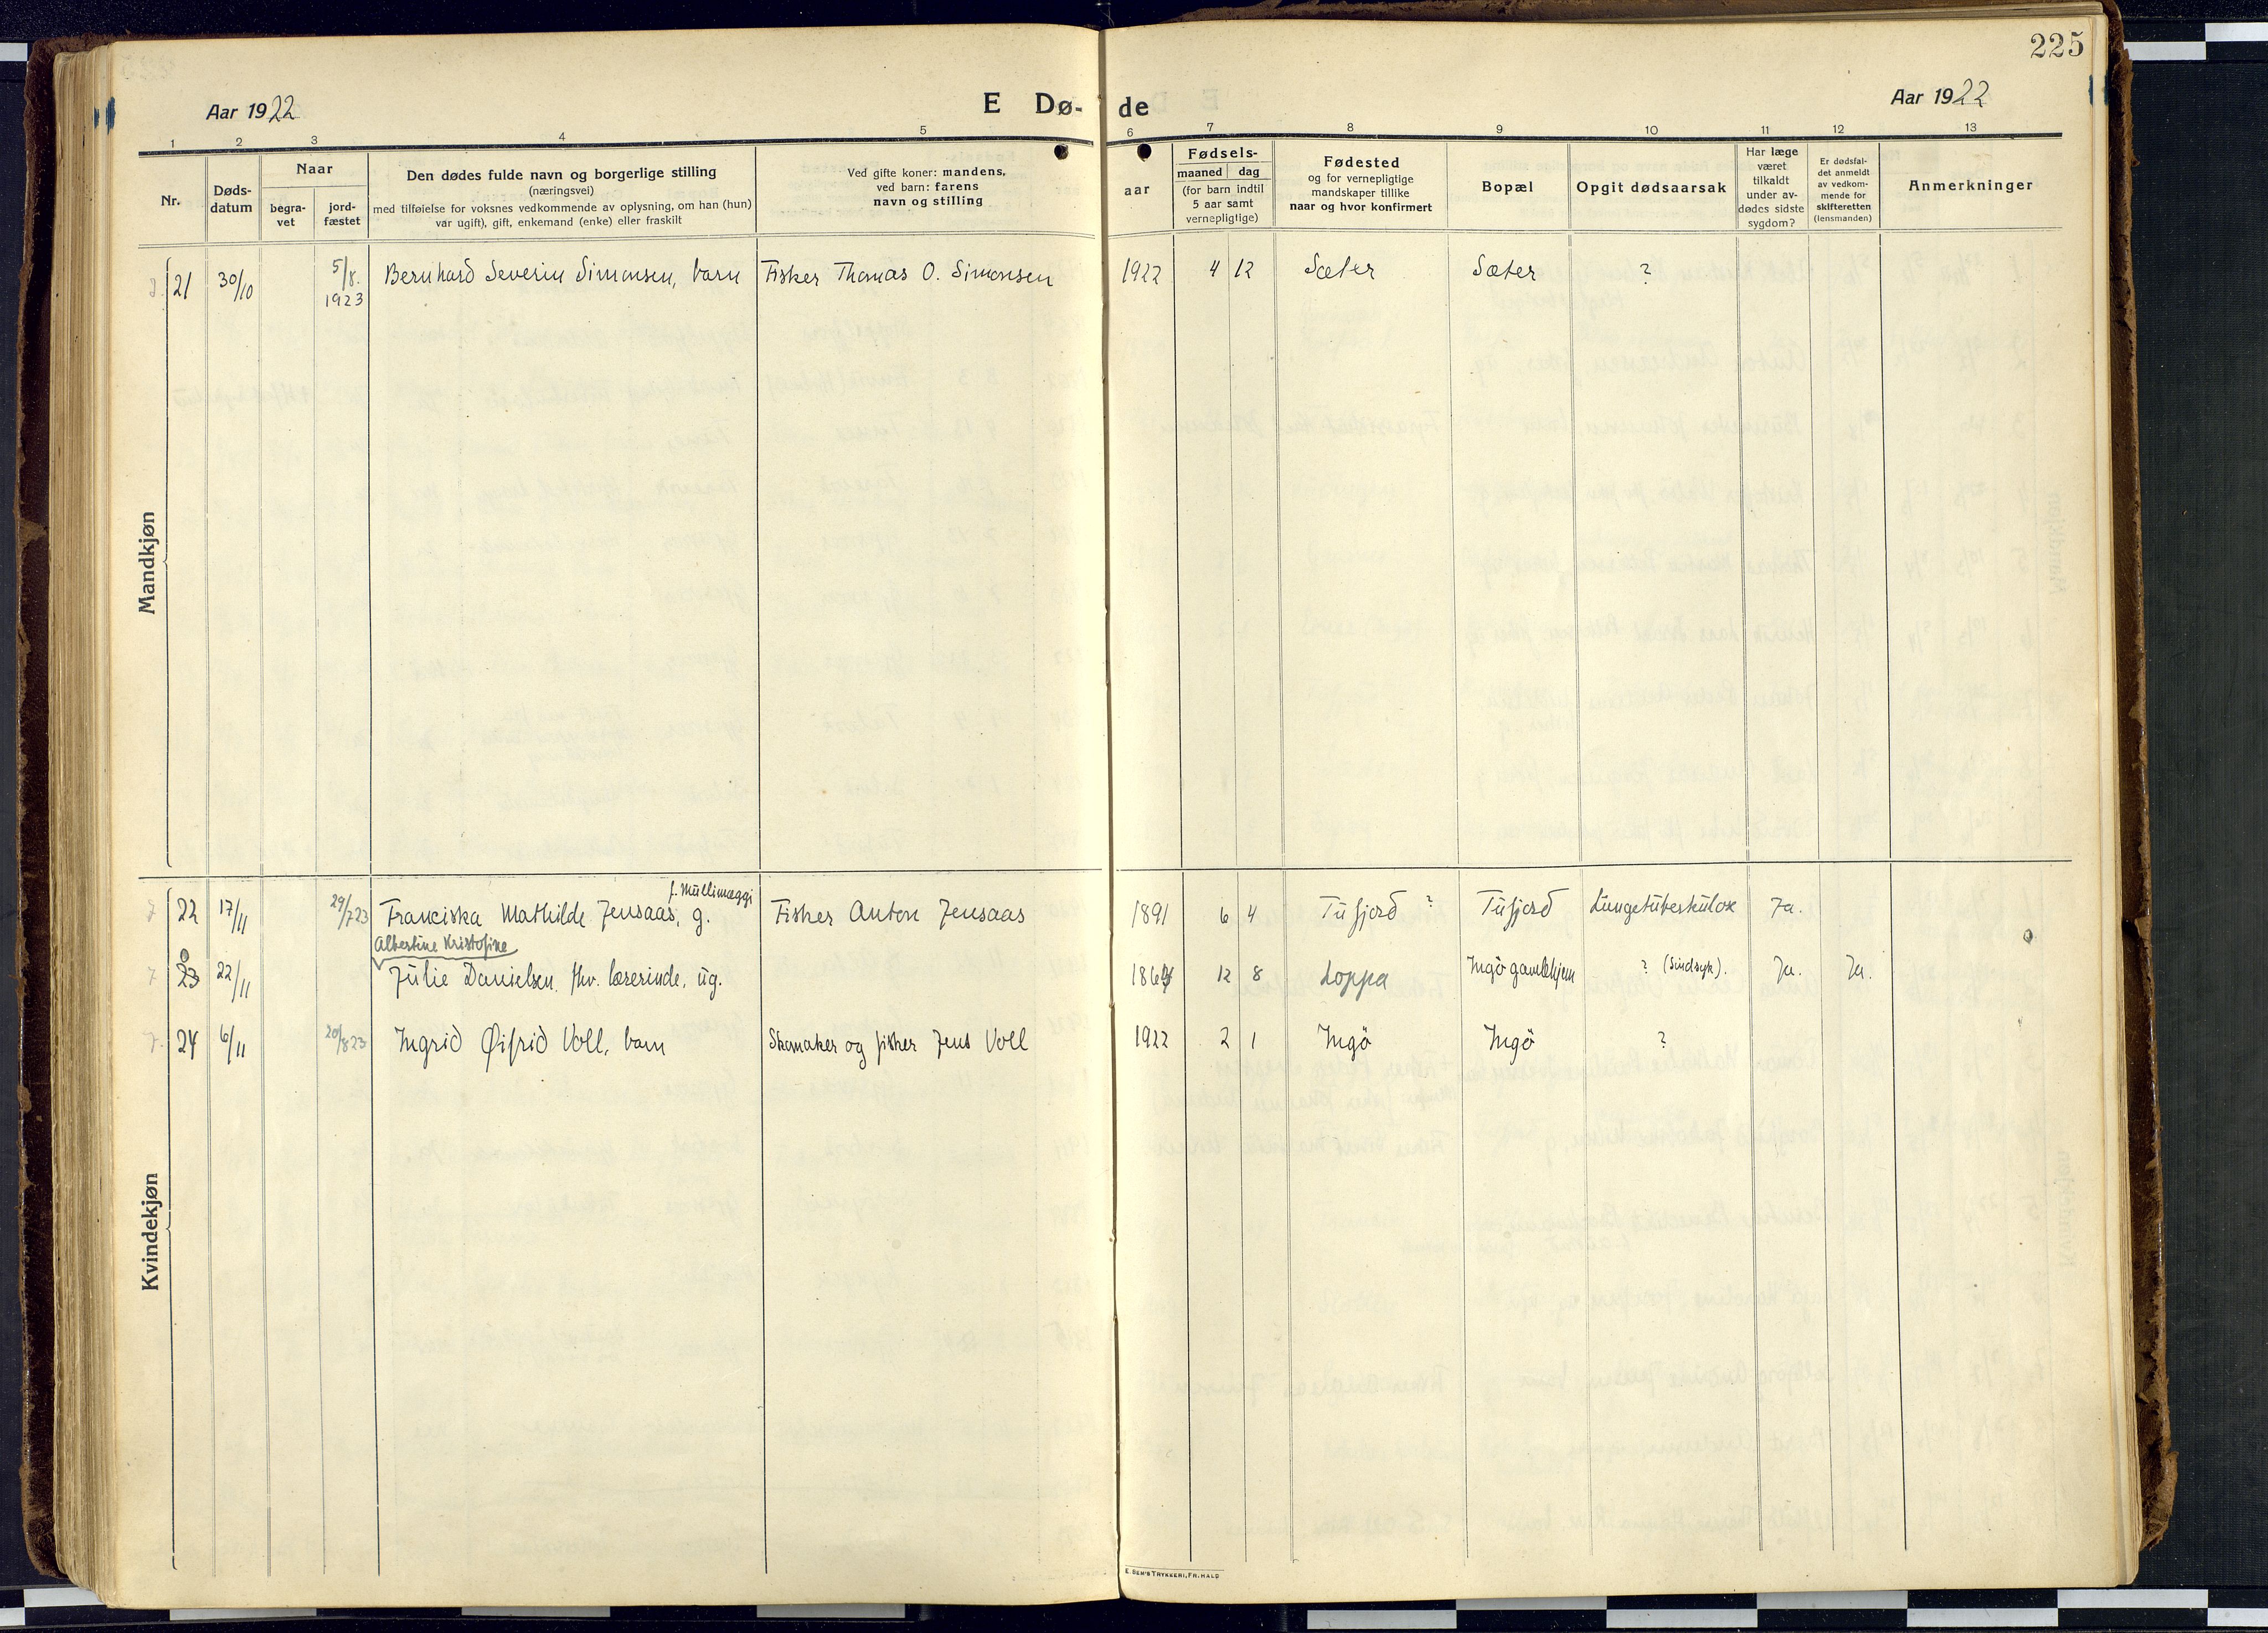 225
Aar 1922
E Dø-
de
Aar 1922
1 2 3 4 5 6 7 8 9 10 11 12 13
Nr.
Døds-
datum
Naar
begra-
vet
jord-
fæstet
Den dødes fulde navn og borgerlige stilling
(næringsvei)
med tilføielse for voksnes vedkommende av oplysning, om han (hun)
var ugift), gift, enkemand (enke) eller fraskilt
Ved gifte koner: mandens,
ved barn: farens
navn og stilling
aar
Fødsels-
maaned dag
(for barn indtil
5 aar samt
vernepligtige)
Fødested
og for vernepligtige
mandskaper tillike
naar og hvor konfirmert
Bopæl
Opgit dødsaarsak
Har læge
været
tilkaldt
under av-
dødes sidste
sygdom?
Er dødsfal-
det anmeldt
av vedkom-
mende for
skifteretten
(lensmanden)
Anmerkninger
Mandkjøn
21 30/10 5/8. 1923 Bernhard Severin Simonsen, barn Fisker Thomas O. Simonsen 1922 4 12 Sæter Sæter ?
Kvindekjøn
f. Mullimæggi
22 17/11 29/7 23 Franciska Mathilde Jensaas, g. Fisker Anton Jensaas 1891 6 4 Tufjord ? Tufjord Lungetuberkulox Ja.
Albertine Kristofine
23 22/11 Julie Danielsen, fhv. lærerinde, ug. 1864 12 8 Loppa Ingö gamlehjem ? (Sindsyk). Ja. Ja.
24 6/11 20/8 23 Ingrid Øifrid Voll, barn Skomaker og fisker Jens Voll 1922 2 1 Ingö Ingö ?
E. SEM'S TRYKKERI, FR.HALD